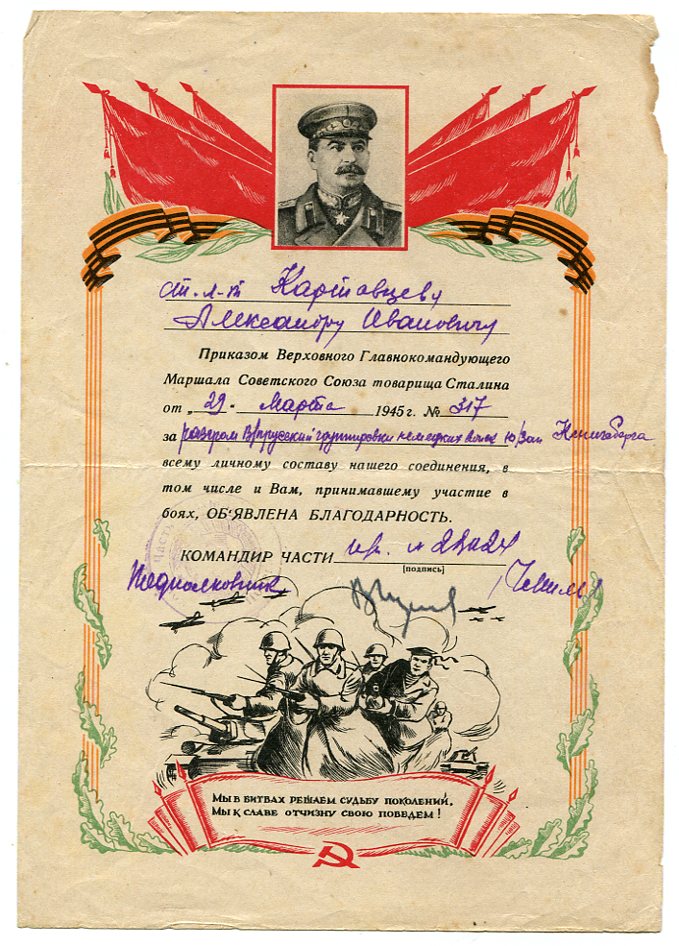 ст. л-т Картавцеву
Александру Ивановичу
Приказом Верховного Главнокомандующего
Маршала Советского Союза товарища Сталина
от „29" марта 1945 г. № 317
за разгром В/прусский группировки немецких войск ю/зап Кенигсберга
всему личному составу нашего соединения, в
том числе и Вам, принимавшему участие в
боях, ОБ'ЯВЛЕНА БЛАГОДАРНОСТЬ.
КОМАНДИР ЧАСТИ
[подпись]
Подполковник
Мы в битвах решаем судьбу поколений,
Мы к славе отчизну свою поведем!